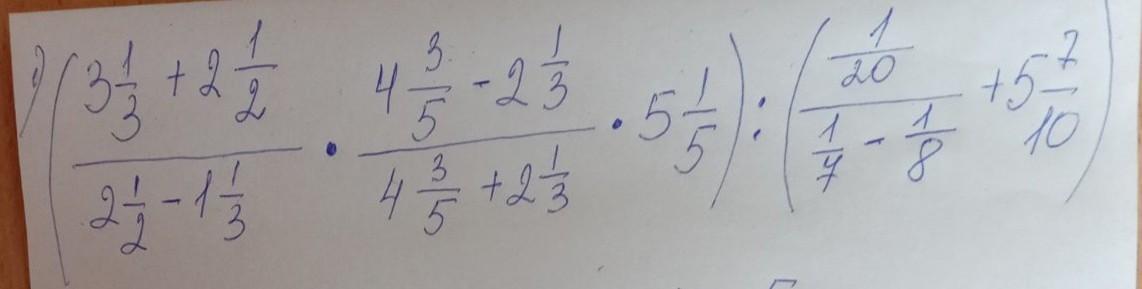 2) ( (3 1/3 + 2 1/2) / (2 1/2 - 1 1/3) · (4 3/5 - 2 1/3) / (4 3/5 + 2 1/3) · 5 1/5 ) : ( (1/20) / (1/7 - 1/8) + 5 7/10 )